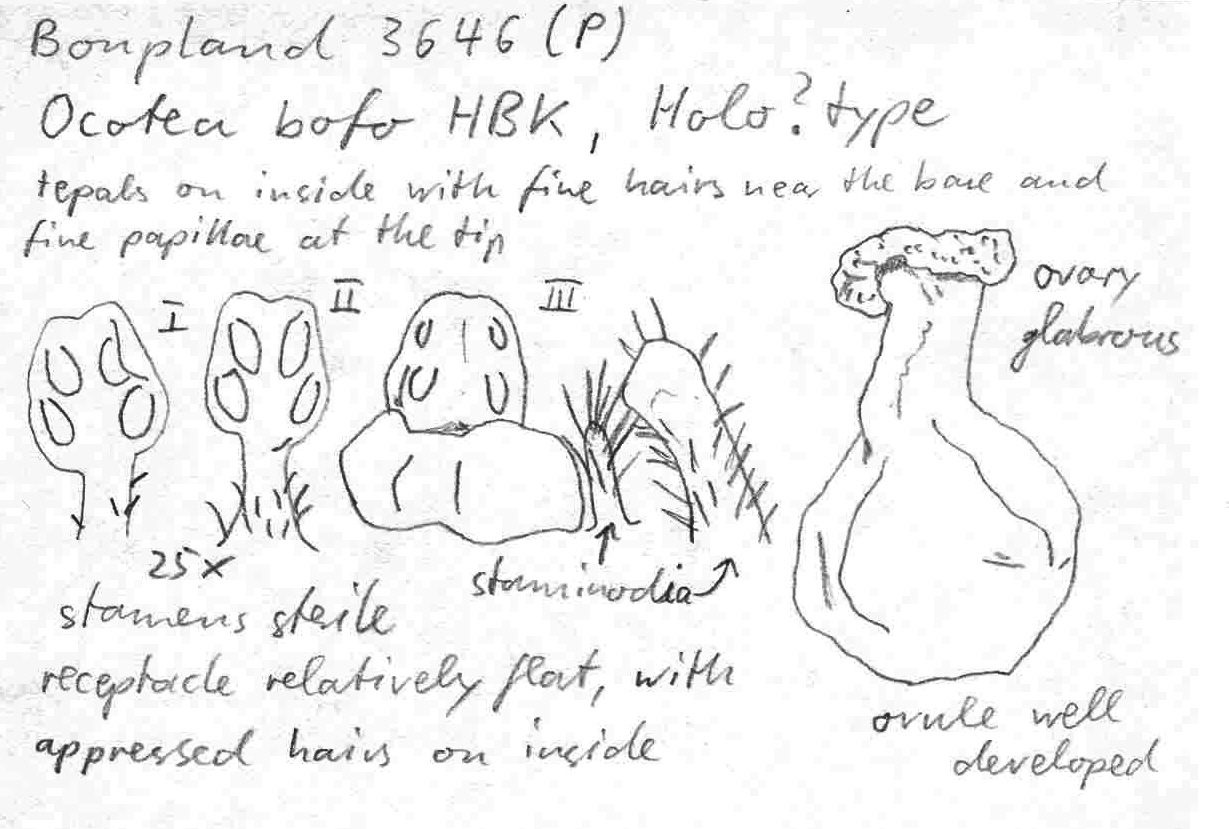 Bonpland 3646 (P)
Ocotea bofo HBK, Holo?type
tepals on inside with fine hairs near the base and
fine papillae at the tip
I
II
III
ovary
glabrous
25x
staminodia
stamens sterile
receptacle relatively flat, with
appressed hairs on inside
ovule well
developed